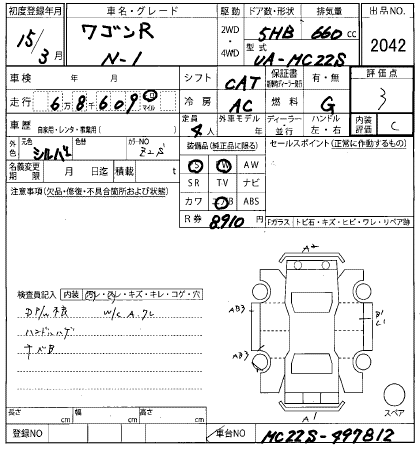 初度登録年月 車名・グレード 駆動 ドア数・形状 排気量 出品NO.
15/3月 ワゴンR N-1 2WD・4WD 5HB 660cc 2042
型式 UA-MC22S
車検 年 月 シフト CAT 保証書 有・無 評価点 3
走行 6万8千609 マイル 冷房 AC 燃料 G
車歴 自家用・レンタ・事業用( ) 定員 4人 外車モデル 年 ディーラー・並行 ハンドル 左・右 内装評価 C
外色 元色 シルバー 色替 カラーNO Z2S 装備品(純正品に限る) セールスポイント(正常に作動するもの)
名義変更期限 月 日迄 積載 t PS PW AW
注意事項(欠品・修復・不具合箇所および状態) SR TV ナビ
カワ エアB ABS
R券 8,910 Fガラス トビ石・キズ・ヒビ・ワレ・リペア跡
A2
検査員記入 内装 汚レ・スレ・キズ・キレ・コゲ・穴
W/C A
ハンドルハゲ
AB3
B1
AB3
スペア
A1
長さ cm 幅 cm 高さ cm
登録NO 車台NO MC22S-497812